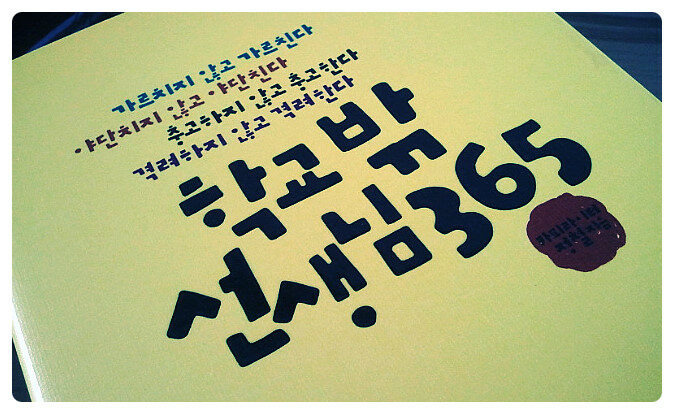 가르치지 않고 가르친다
야단치지 않고 야단친다
충고하지 않고 충고한다
격려하지 않고 격려한다
학교 밖
선생님 365
정철 지음